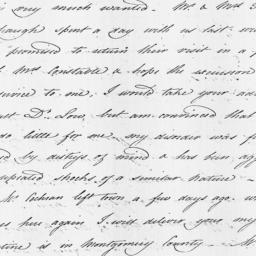 is very much wanted. Mr. & Mrs
spent a day with us last
promised to return their visit in a
Mrs. Constable & hope the
to me. I would take your
Dr. Low, but am convinced that
do little for me. my disorder was
by distress of mind & has been
repeated shocks of a similar nature
Mr Cochran left town a few days ago.
here again I will deliver your
is in Montgomery County.